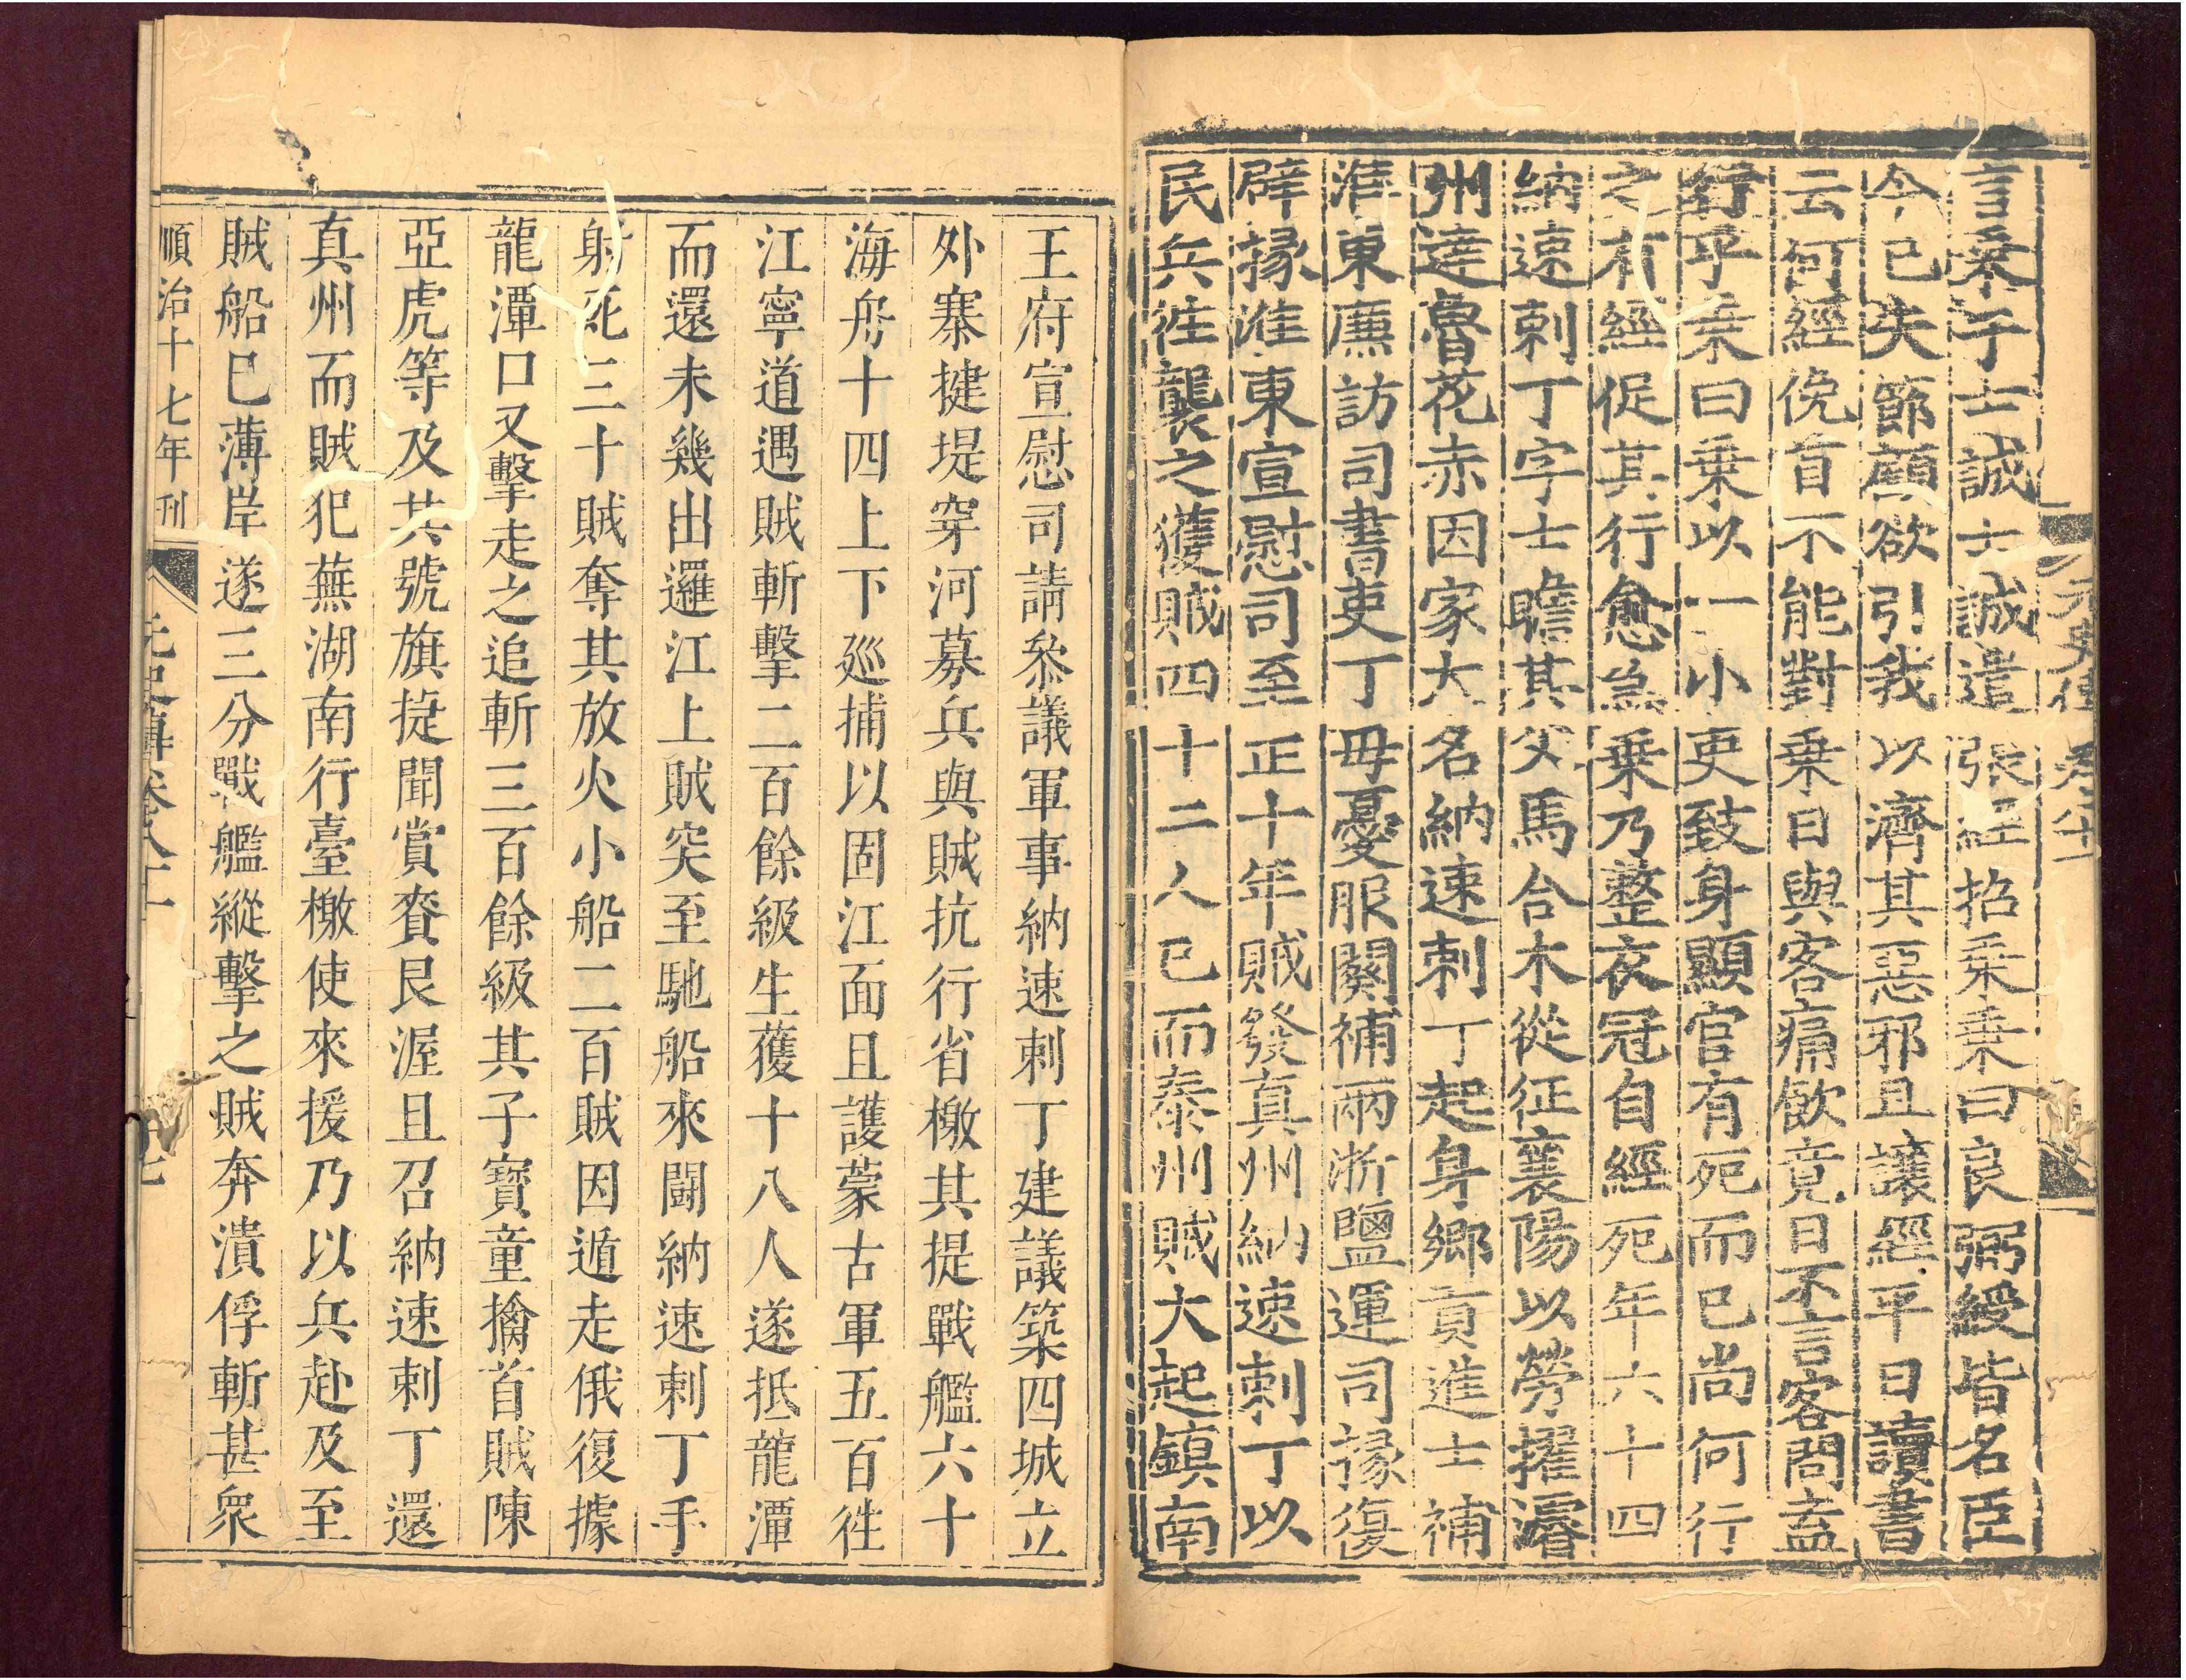 言乘于士誠士誠遣張經招乘乘曰良弼綬皆名臣
今已失節顧欲引我以濟其惡邪且讓經平日讀書
云何經俛首不能對乘日與客痛飲竟日不言客問盍
行乎乘曰乘以一小吏致身顯官有死而已尚何行
之有經促其行愈急乘乃整衣冠自經死年六十四
納速剌丁字士瞻其父馬合木從征襄陽以勞擢濬
州達魯花赤因家大名納速剌丁起身鄉貢進士補
淮東廉訪司書吏丁毋憂服闋補兩浙鹽運司掾復
辟掾淮東宣慰司至正十年賊發真州納速剌丁以
民兵往襲之獲賊四十二人已而泰州賊大起鎮南
王府宣慰司請叅議軍事納速剌丁建議築四城立
外寨揵堤穿河募兵與賊抗行省檄其提戰艦六十
海舟十四上下廵捕以固江面且護蒙古軍五百徃
江寧道遇賊斬擊二百餘級生獲十八人遂抵龍潭
而還未幾出邏江上賊突至馳船來鬪納速剌丁手
射死三十賊奪其放火小船二百賊因遁走俄復據
龍潭口又擊走之追斬三百餘級其子寶童擒首賊陳
亞虎等及其號旗㨗聞賞賚艮渥且召納速剌丁還
真州而賊犯蕪湖南行臺檄使來援乃以兵赴及至
賊船巳薄岸遂三分戰艦縱擊之賊奔潰俘斬甚衆
順治十七年刊
元史傳卷八十一